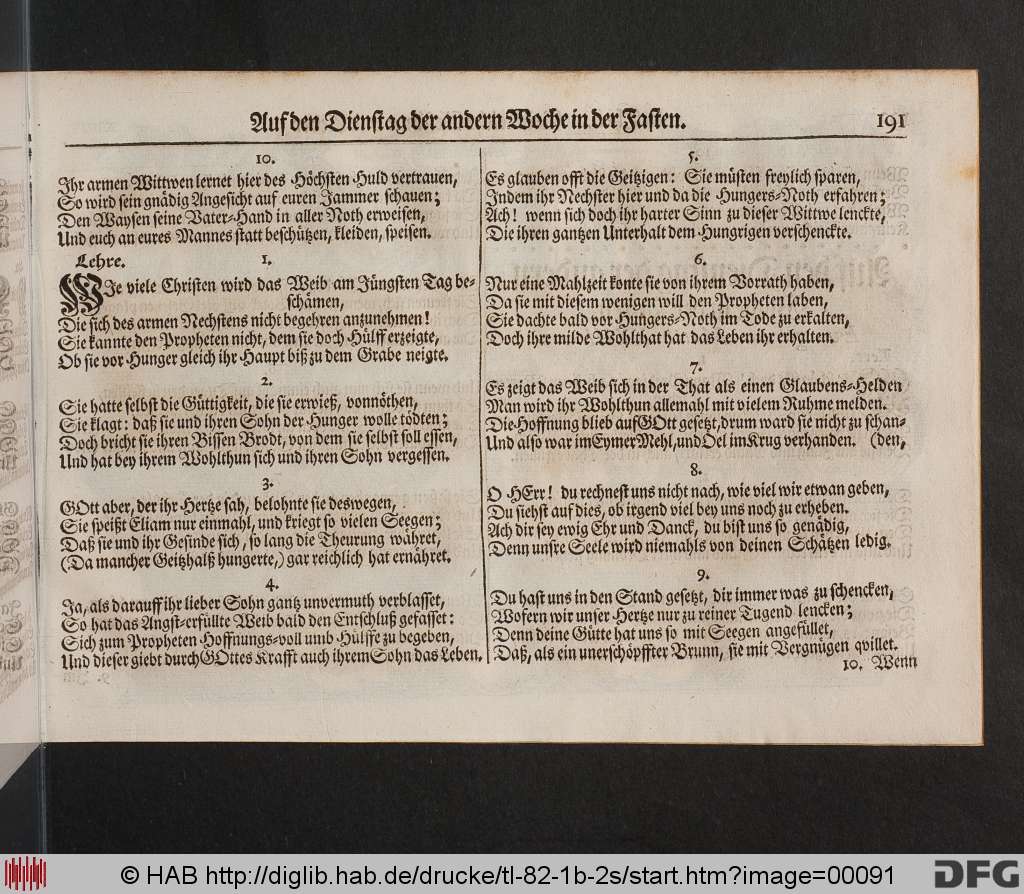 Auf den Dienstag der andern Woche in der Fasten. 191
10.
Ihr armen Wittwen lernet hier des Höchsten Huld vertrauen,
So wird sein gnädig Angesicht auf euren Jammer schauen;
Den Waysen seine Vater-Hand in aller Noth erweisen,
Und euch an eures Mannes statt beschützen, kleiden, speisen.
Lehre. 1.
WIe viele Christen wird das Weib am Jüngsten Tag be-
schämen,
Die sich des armen Nechstens nicht begehren anzunehmen!
Sie kannte den Propheten nicht, dem sie doch Hülff erzeigte,
Ob sie vor Hunger gleich ihr Haupt biß zu dem Grabe neigte.
2.
Sie hatte selbst die Güttigkeit, die sie erwieß, vonnöthen,
Sie klagt: daß sie und ihren Sohn der Hunger wolle tödten;
Doch bricht sie ihren Bissen Brodt, von dem sie selbst soll essen,
Und hat bey ihrem Wohlthun sich und ihren Sohn vergessen.
3.
GOtt aber, der ihr Hertze sah, belohnte sie deswegen,
Sie speißt Eliam nur einmahl, und kriegt so vielen Seegen;
Daß sie und ihr Gesinde sich, so lang die Theurung währet,
(Da mancher Geitzhalß hungerte,) gar reichlich hat ernähret.
4.
Ja, als darauff ihr lieber Sohn gantz unvermuth verblasset,
So hat das Angst-erfüllte Weib bald den Entschluß gefasset:
Sich zum Propheten Hoffnungs-voll umb Hülffe zu begeben,
Und dieser giebt durch GOttes Krafft auch ihrem Sohn das Leben.
5.
Es glauben offt die Geitzigen: Sie müsten freylich sparen,
Indem ihr Nechster hier und da die Hungers-Noth erfahren;
Ach! wenn sich doch ihr harter Sinn zu dieser Wittwe lenckte,
Die ihren gantzen Unterhalt dem Hungrigen verschenckte.
6.
Nur eine Mahlzeit konte sie von ihrem Vorrath haben,
Da sie mit diesem wenigen will den Propheten laben,
Sie dachte bald vor Hungers-Noth im Tode zu erkalten,
Doch ihre milde Wohlthat hat das Leben ihr erhalten.
7.
Es zeigt das Weib sich in der That als einen Glaubens-Helden
Man wird ihr Wohlthun allemahl mit vielem Ruhme melden.
Die Hoffnung blieb auf GOtt gesetzt, drum ward sie nicht zu schan-
Und also war im Eymer Mehl, und Oel im Krug verhanden. (den,
8.
O HErr! du rechnest uns nicht nach, wie viel wir etwan geben,
Du siehst auf dies, ob irgend viel bey uns noch zu erheben.
Ach dir sey ewig Ehr und Danck, du bist uns so genädig,
Denn unsre Seele wird niemahls von deinen Schätzen ledig.
9.
Du hast uns in den Stand gesetzt, dir immer was zu schencken,
Wofern wir unser Hertze nur zu reiner Tugend lencken;
Denn deine Gütte hat uns so mit Seegen angefüllet,
Daß, als ein unerschöpffter Brunn, sie mit Vergnügen qvillet.
10. Wenn
© HAB http://diglib.hab.de/drucke/tl-82-1b-2s/start.htm?image=00091
DFG